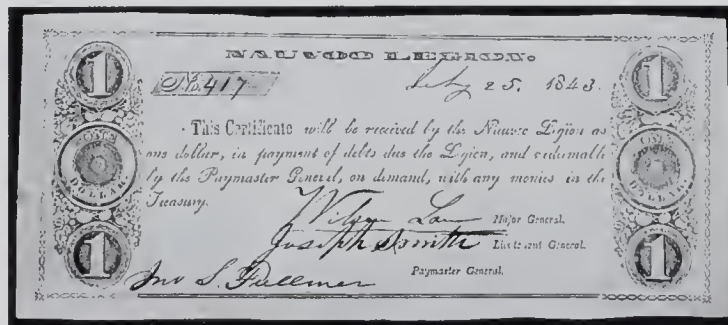 1 NAUVOO LEGION. 1
No. 417 July 25. 1843.
This Certificate will be received by the Nauvoo Legion as
ONE DOLLAR one dollar, in payment of debts due the Legion, and redeemable ONE DOLLAR
by the Paymaster General, on demand, with any monies in the
Treasury.
Wilson Law Major General.
1 Joseph Smith Lieutenant General. 1
Paymaster General.
Jno S. Fullmer